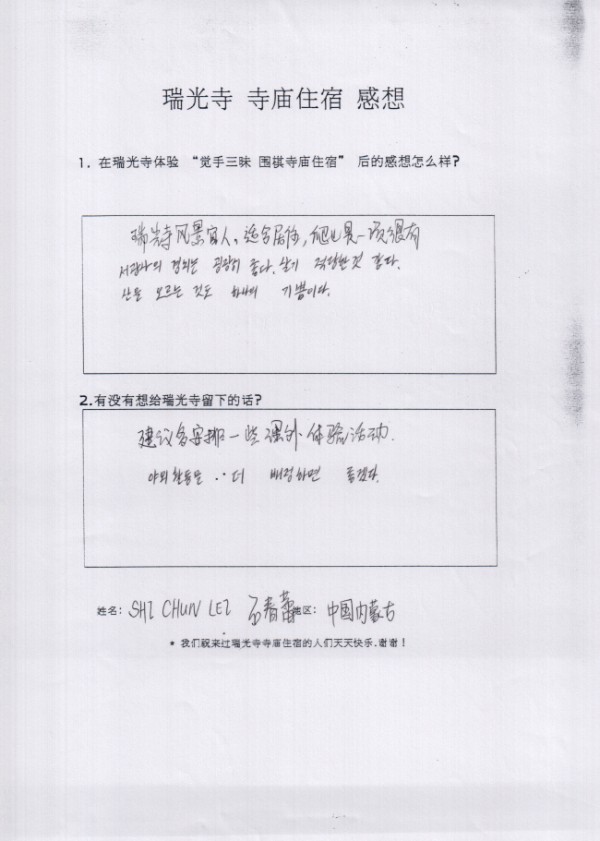 瑞光寺 寺庙住宿 感想
1. 在瑞光寺体验 “觉手三昧 围棋寺庙住宿” 后的感想怎么样?
瑞光寺风景宜人。适合居住,爬山是一项很有
서광사의 경치는 굉장히 좋다. 살기 적당한것 같다.
산을 오르는 것도 하나의 기쁨이다.
2.有没有想给瑞光寺留下的话?
建议多安排一些课外体验活动.
야외활동을 더 배정하면 좋겠다.
姓名: SHI CHUN LEI 石春蕾 地区: 中国内蒙古
* 我们祝来过瑞光寺寺庙住宿的人们天天快乐.谢谢!